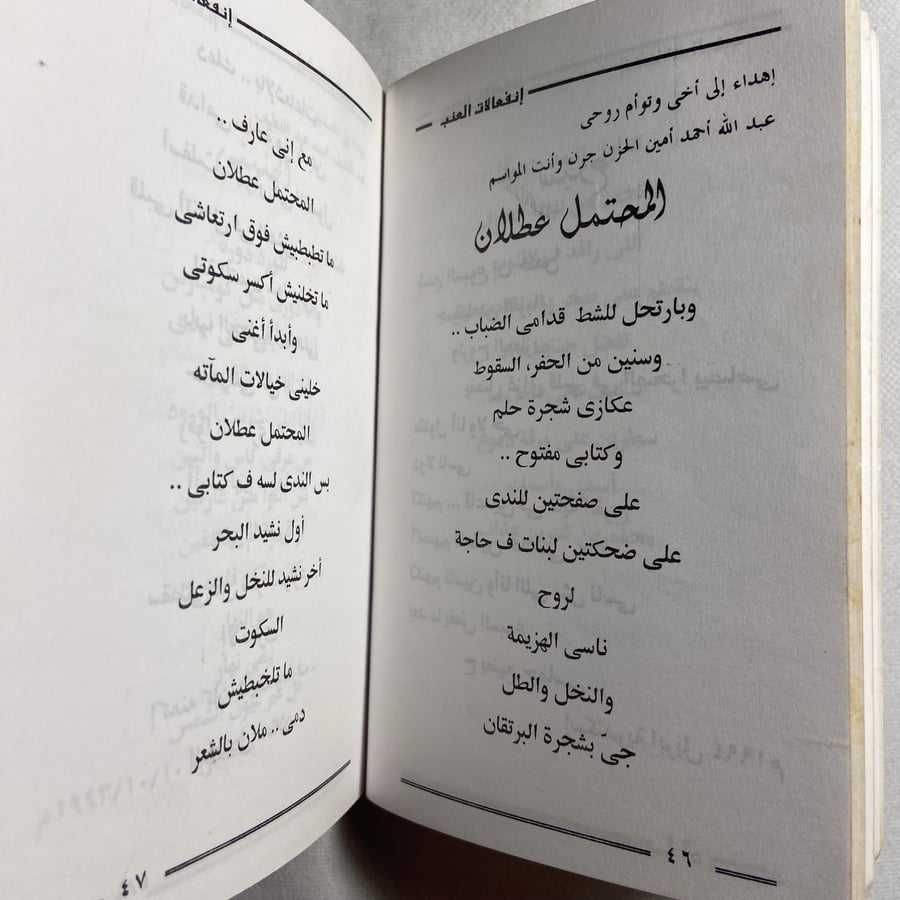 إنفعالات العنب
إهداء إلى أخى وتوأم روحى
عبد الله أحمد أمين الحزن جرن وأنت المواسم
المحتمل عطلان
وبارتحل للشط قدامى الضباب ..
وسنين من الحفر، السقوط
عكازى شجرة حلم
وكتابى مفتوح ..
على صفحتين للندى
على ضحكتين لبنات ف حاجة
لروح
ناسى الهزيمة
والنخل والطل
جى بشجرة البرتقان
٤٦
مع إنى عارف ..
المحتمل عطلان
ما تطبطبيش فوق ارتعاشى
ما تخلنيش أكسر سكوتى
وأبدأ أغنى
خلينى خيالات المآته
المحتمل عطلان
بس الندى لسه ف كتابى ..
أول نشيد البحر
أخر نشيد للنخل والزعل
السكوت
ما تلخبطيش
دمى .. ملان بالشعر
٤٧